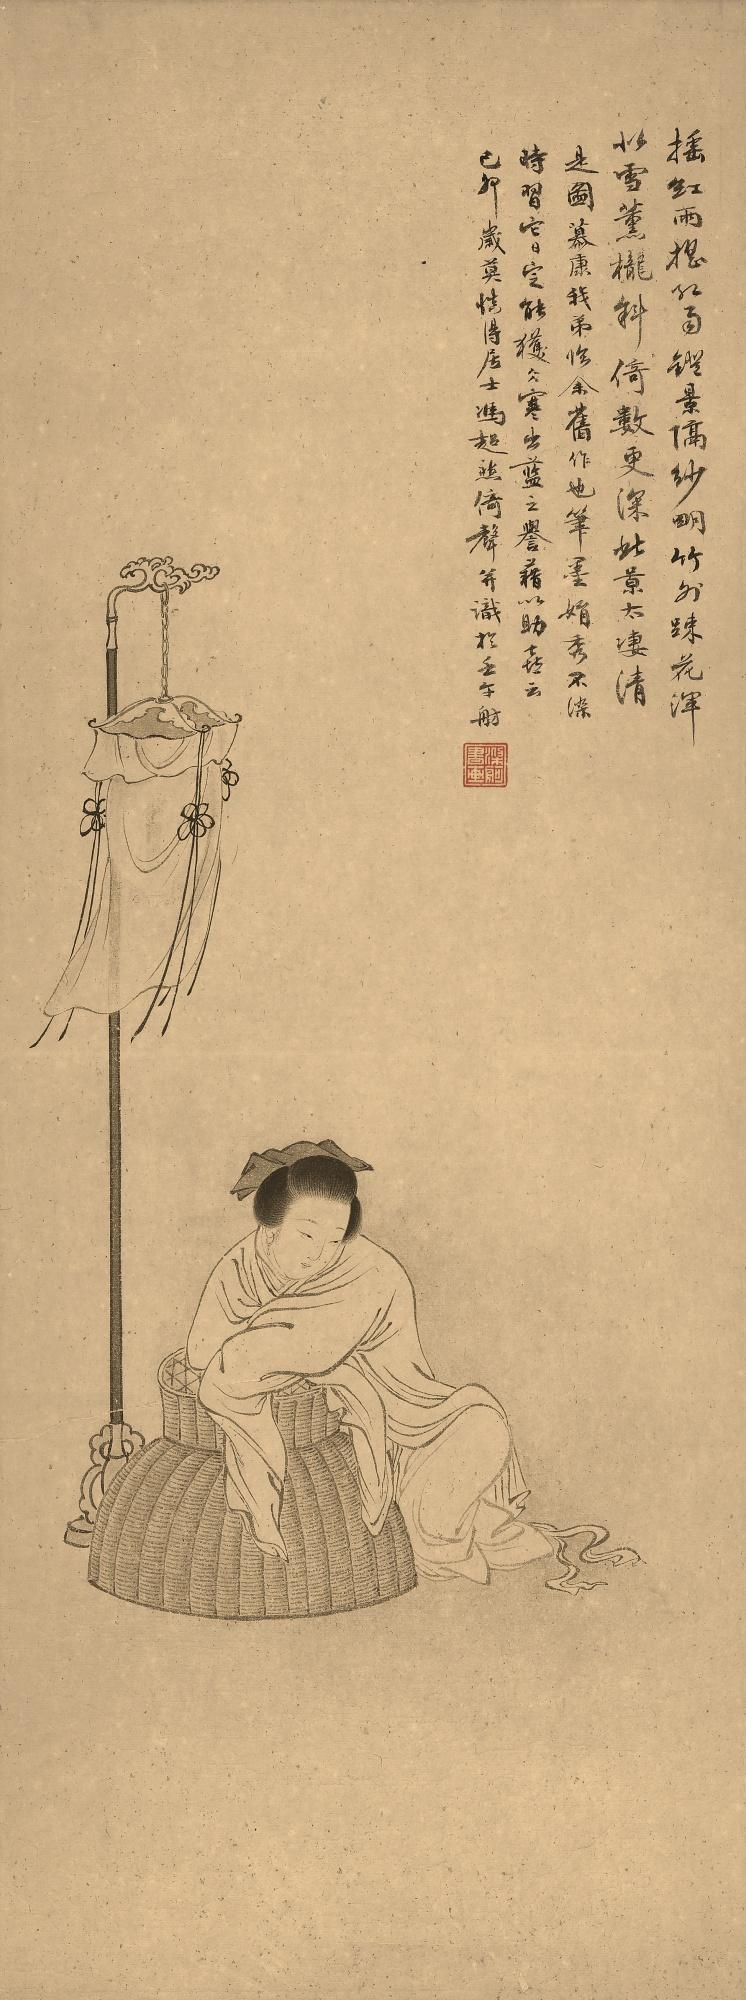 搖紅兩槐名南鐙景隔紗明竹外疎花渾
似雪薰櫳斜倚數更深此景太凄清
是圖慕康我弟臨余舊作也筆墨娟秀不深
時習它日定能獲冰寒出藍之譽藉以助喜云
己卯歲莫慎得居士馮超然倚聲并識於壬午舫